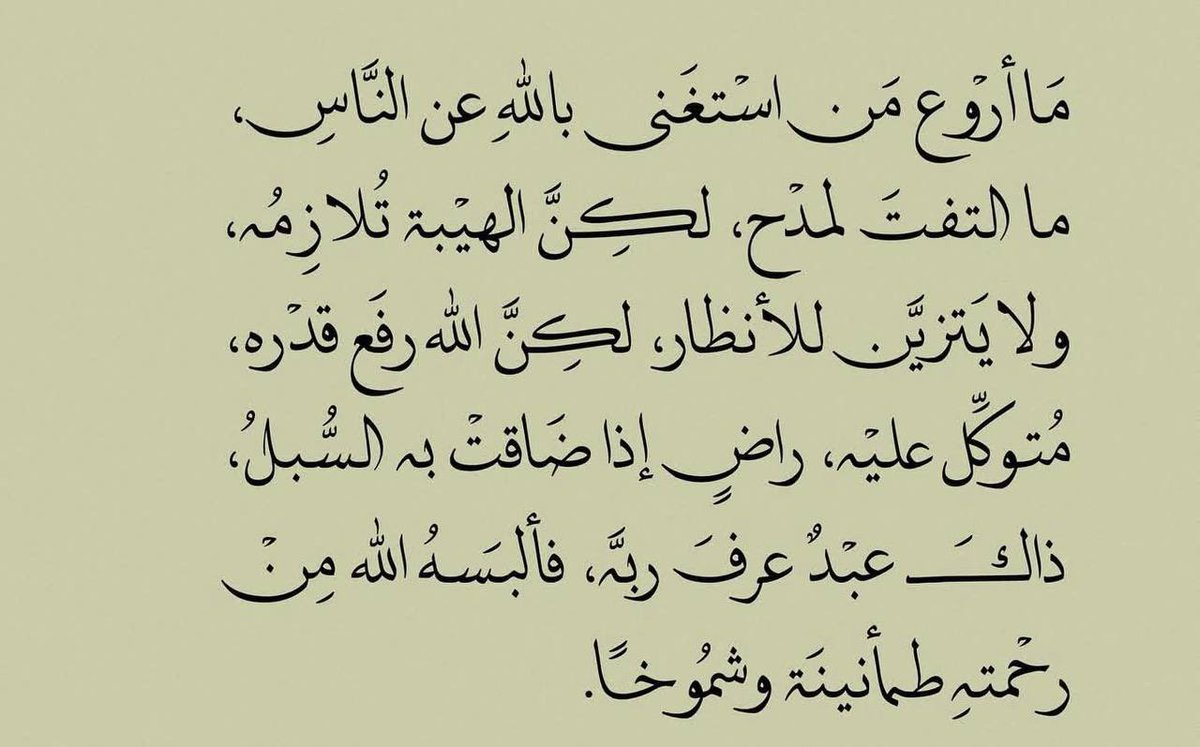 مَا أرْوع مَن استْغَنى باللهِ عن النَّاسِ،
ما التفتَ لمدْح، لكِنَّ الهيْبة تُلازِمُه،
ولا يَتزيَّن للأنظار، لكِنَّ الله رفَع قدْره،
مُتوكِّل عليْه، راضٍ إذا ضَاقتْ به السُّبلُ،
ذاكَ عبْدٌ عرفَ ربَّه، فألبَسهُ الله مِنْ
رحْمتهِ طمأنينَة وشمُوخًا.